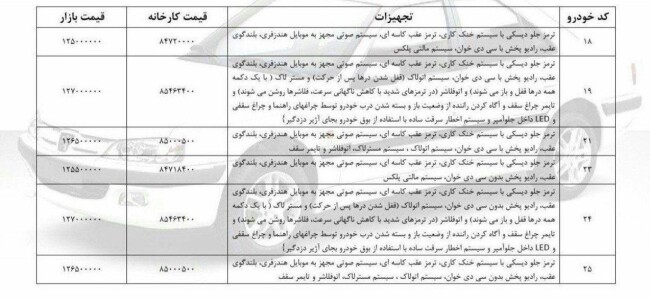 کد خودرو تجهیزات قیمت کارخانه قیمت بازار
ترمز جلو دیسکی با سیستم خنک کاری، ترمز عقب کاسه ای، سیستم صوتی مجهز به موبایل هندزفری، بلندگوی
۱۸ ۸۴۷۲۰۰۰۰ ۱۲۵۰۰۰۰۰۰
عقب، رادیو پخش با سی دی خوان، سیستم مالتی پلکس
ترمز جلو دیسکی با سیستم خنک کاری، ترمز عقب کاسه ای، سیستم صوتی مجهز به موبایل هندزفری، بلندگوی
عقب، رادیو پخش با سی دی خوان، سیستم اتولاک (قفل شدن درها پس از حرکت) و مستر لاک ( با یک دکمه
۱۹ همه درها قفل و باز می شوند) و اتوفلاشر (در ترمزهای شدید با کاهش ناگهانی سرعت، فلاشرها روشن می شوند) و ۸۵۴۶۳۴۰۰ ۱۲۷۰۰۰۰۰۰
تایمر چراغ سقف و آگاه کردن راننده از وضعیت باز و بسته شدن درب خودرو توسط چراغهای راهنما و چراغ سقفی
LED داخل جلوآمپر و سیستم اخطار سرقت ساده با استفاده از بوق خودرو بجای آژیر دزدگیر}
ترمز جلو دیسکی با سیستم خنک کاری، ترمز عقب کاسه ای، سیستم صوتی مجهز به موبایل هندزفری، بلندگوی
۲۱ ۸۵۰۰۰۵۰۰ ۱۲۶۵۰۰۰۰۰
عقب، رادیو پخش با سی دی خوان، سیستم اتولاک ، سیستم مسترلاک، اتوفلاشر و تایمر سقف
ترمز جلو دیسکی با سیستم خنک کاری، ترمز عقب کاسه ای، سیستم صوتی مجهز به موبایل هندزفری، بلندگوی
۲۳ ۸۴۷۱۸۴۰۰ ۱۲۵۵۰۰۰۰۰
عقب، رادیو پخش بدون سی دی خوان، سیستم مالتی پلکس
ترمز جلو دیسکی با سیستم خنک کاری، ترمز عقب کاسه ای، سیستم صوتی مجهز به موبایل هندزفری، بلندگوی
عقب، رادیو پخش بدون سی دی خوان، سیستم اتولاک (قفل شدن درها پس از حرکت) و مستر لاک ( با یک دکمه
۲۴ همه درها قفل و باز می شوند) و اتوفلاشر (در ترمزهای شدید با کاهش ناگهانی سرعت، فلاشرها روشن می شوند) و ۸۵۴۶۳۴۰۰ ۱۲۷۰۰۰۰۰۰
تایمر چراغ سقف و آگاه کردن راننده از وضعیت باز و بسته شدن درب خودرو توسط چراغهای راهنما و چراغ سقفی
و LED داخل جلوآمپر و سیستم اخطار سرقت ساده با استفاده از بوق خودرو بجای آژیر دزدگیر}
ترمز جلو دیسکی با سیستم خنک کاری، ترمز عقب کاسه ای، سیستم صوتی مجهز به موبایل هندزفری، بلندگوی
۲۵ ۸۵۰۰۰۵۰۰ ۱۲۶۵۰۰۰۰۰
عقب، رادیو پخش بدون سی دی خوان، سیستم اتولاک ، سیستم مسترلاک، اتوفلاشر و تایمر سقف